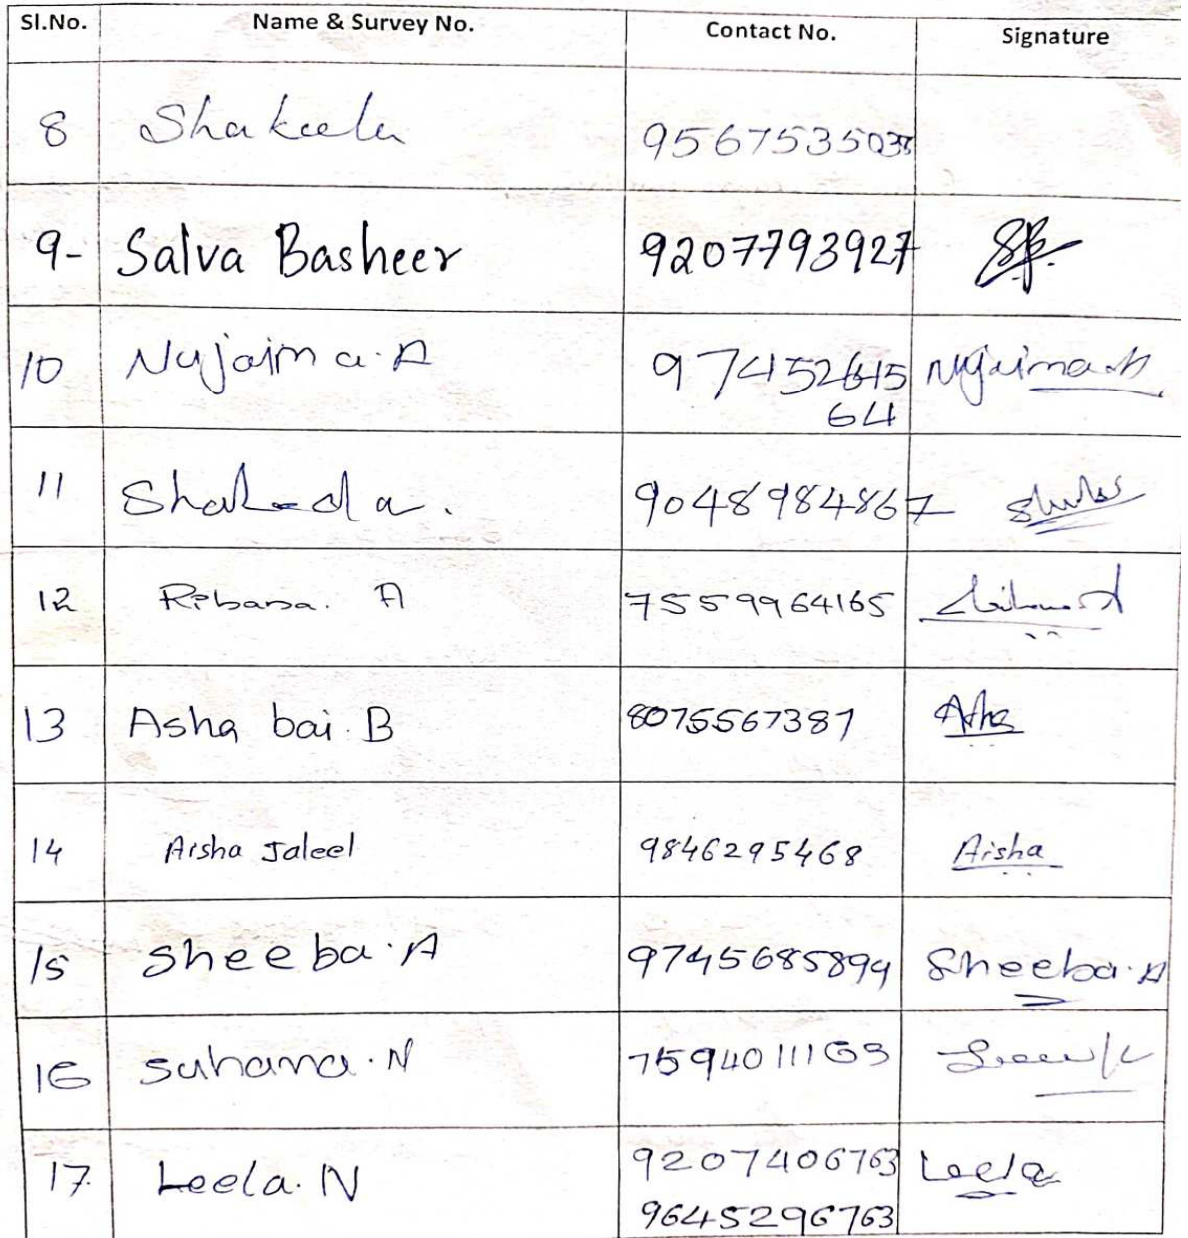 Sl.No. Name & Survey No. Contact No. Signature
8 Shakeela
9- Salva Basheer 9207793927
10 Nujaima. A Nujaima. A
64
11 9048984867
12 Ribana. A 7559964165
13 Asha bai. B 8075567387 Asha
14 Aisha Jaleel 9846295468 Aisha
15 Sheeba. A 9745685894 Sheeba. A
16 Suhana. N
17. Leela. N 9207406763 Leela
9645296763